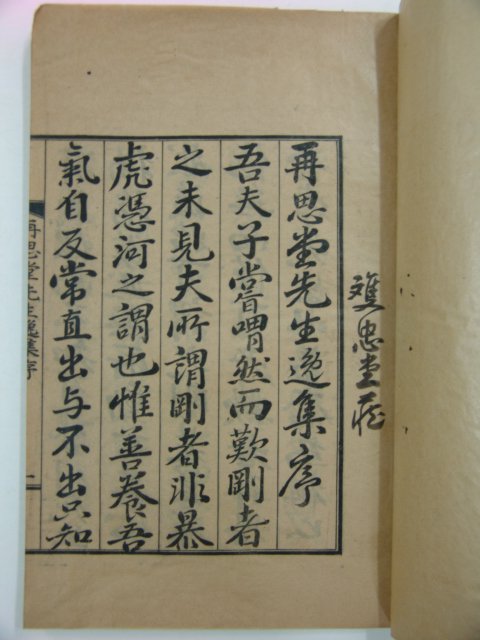 雙忠堂藏
再思堂先生逸集序
吾夫子嘗喟然而歎剛者
之未見夫所謂剛者非暴
虎憑河之謂也惟善養吾
氣自反常直出与不出只知
再思堂先生逸集序